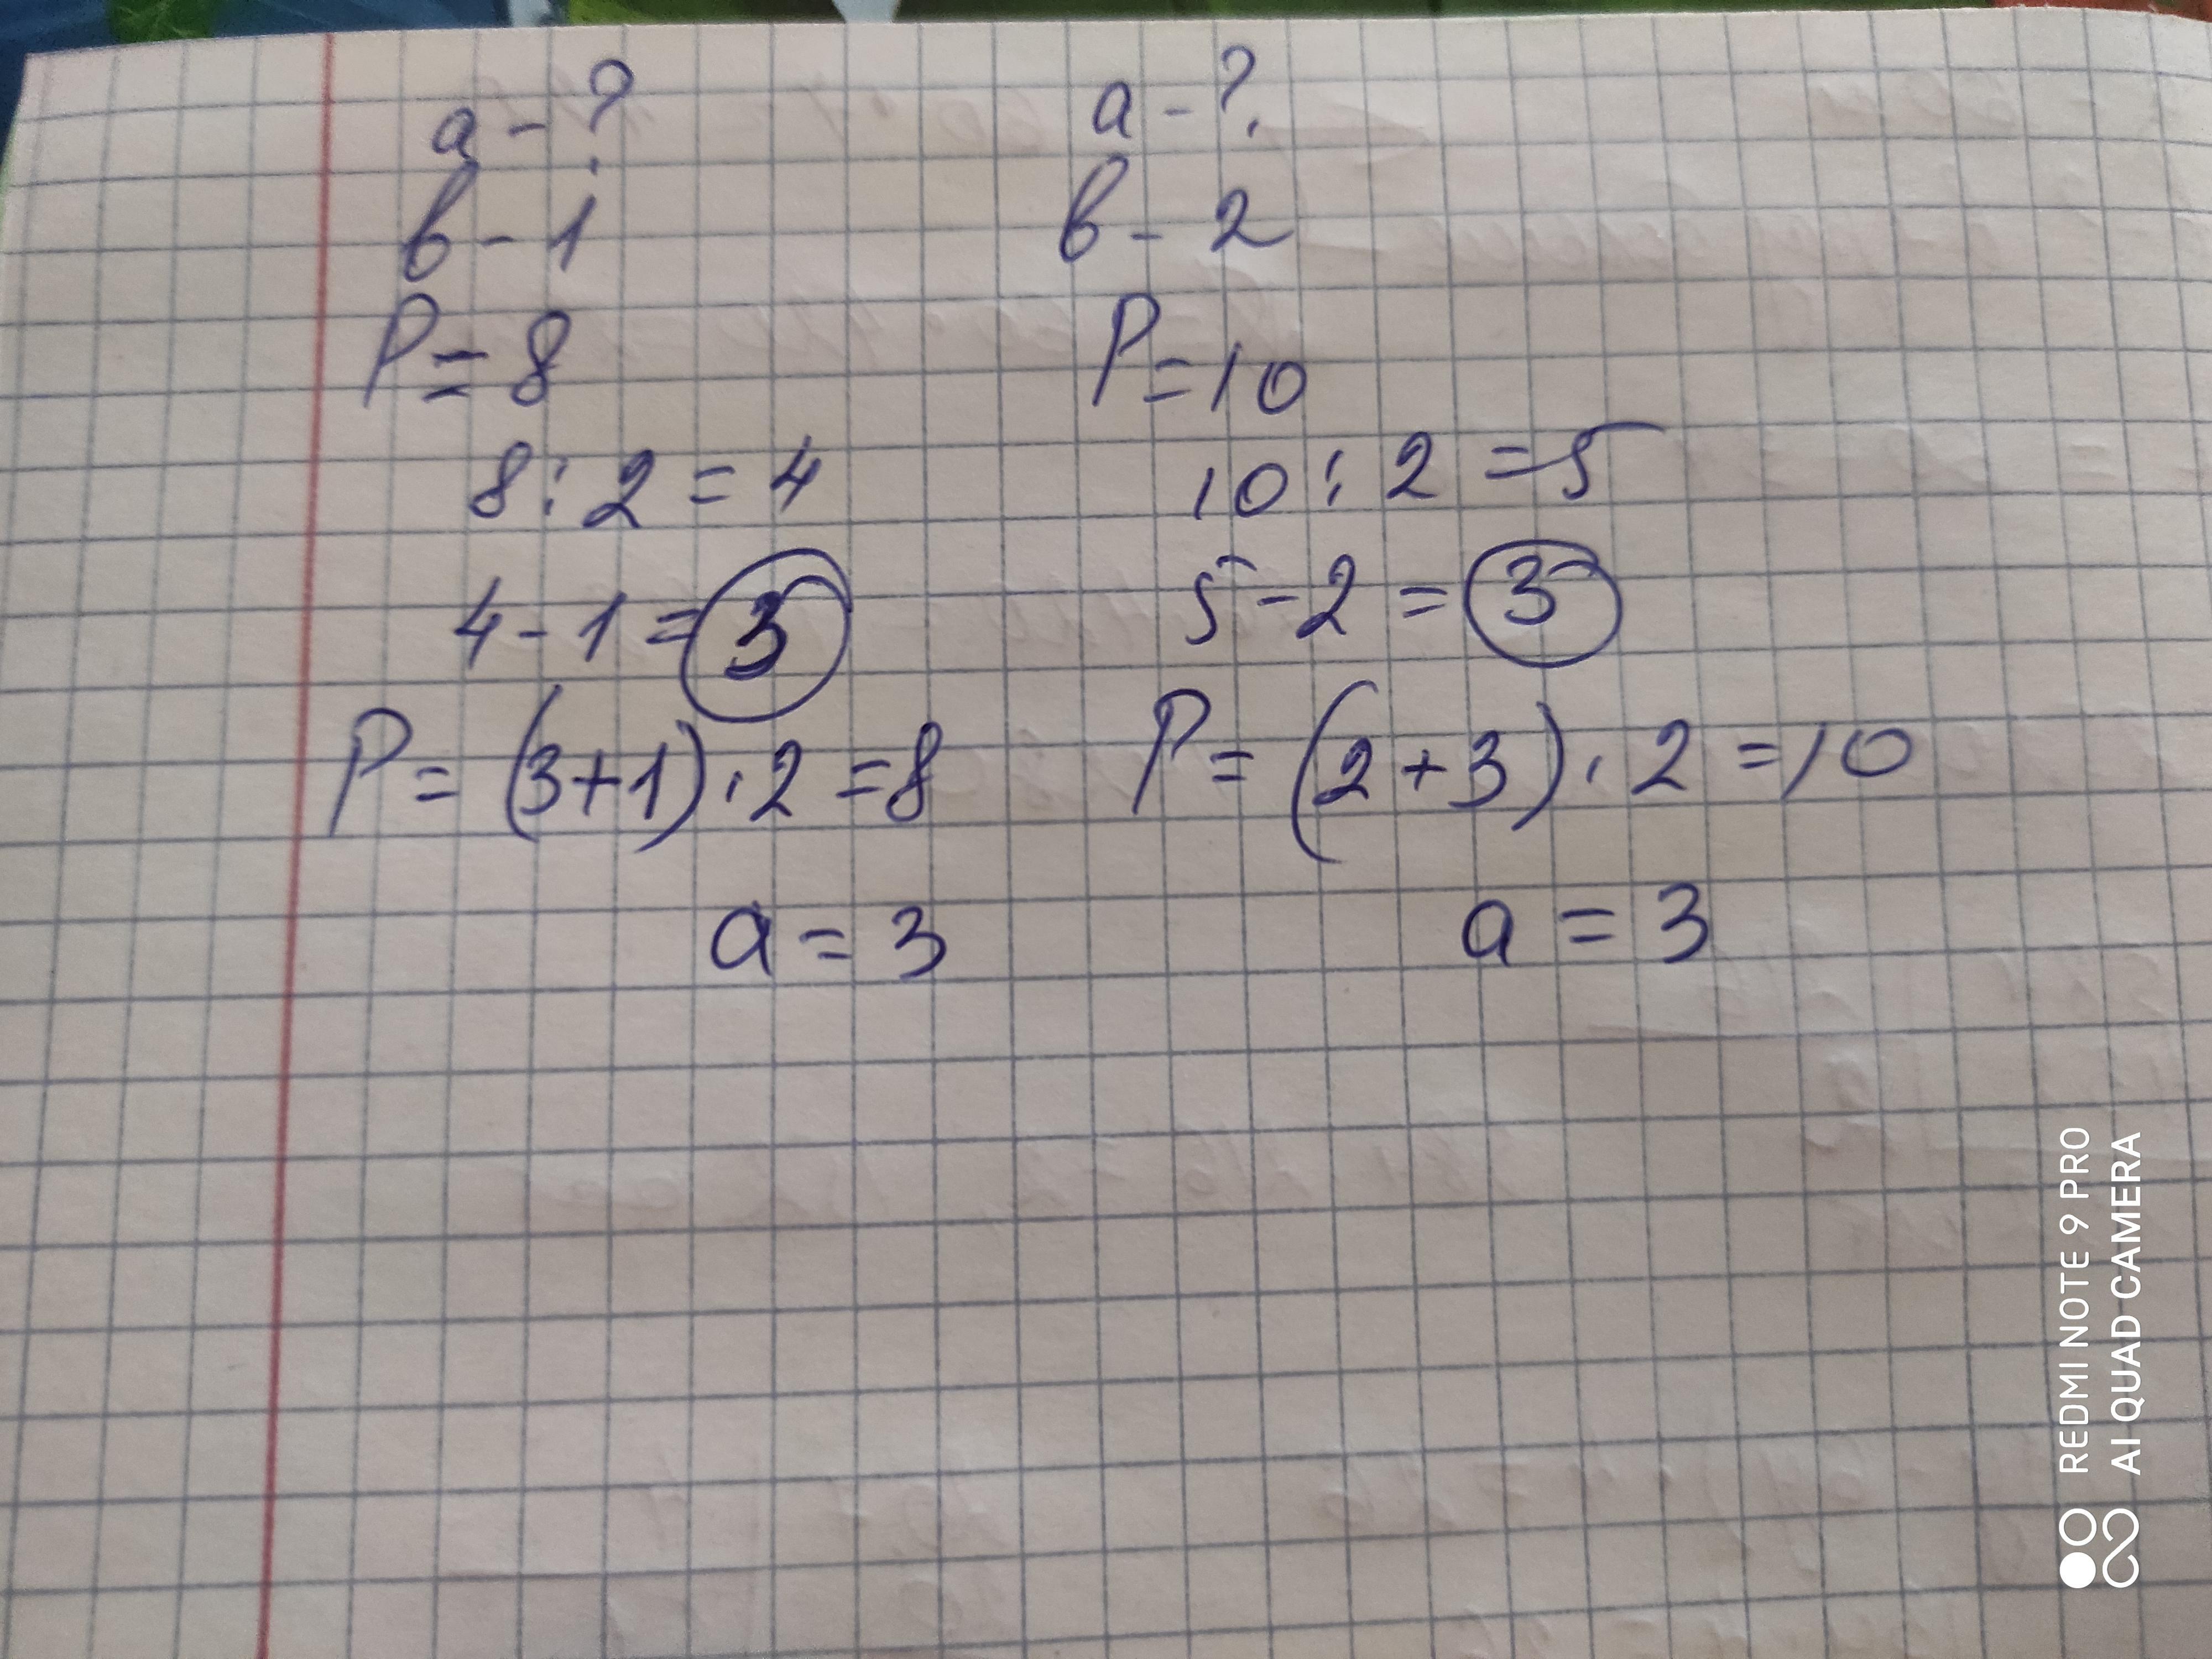 a - ?
в - 1
P = 8
8 : 2 = 4
4 - 1 = 3
P = (3+1) · 2 = 8
a = 3
a - ?
в - 2
P = 10
10 : 2 = 5
5 - 2 = 3
P = (2 + 3) · 2 = 10
a = 3
REDMI NOTE 9 PRO
AI QUAD CAMERA